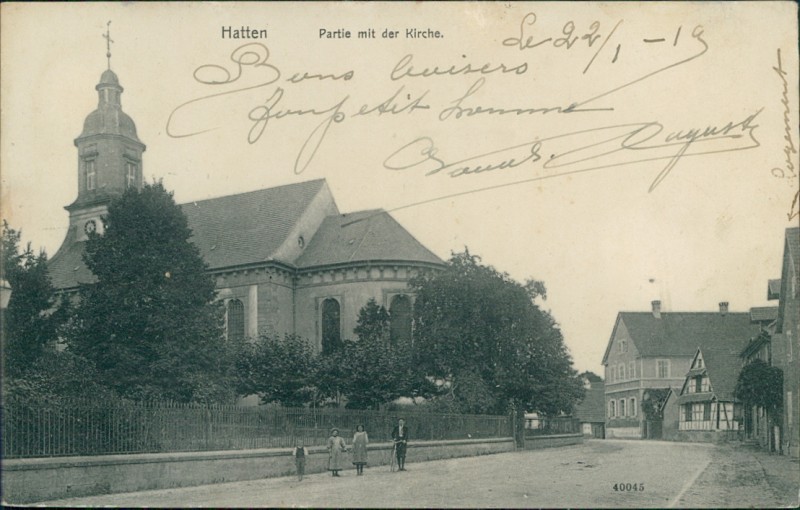 Hatten
Partie mit der Kirche.
Le 22/1-19
Bons baisers
Ton petit homme
August
Logement
40045